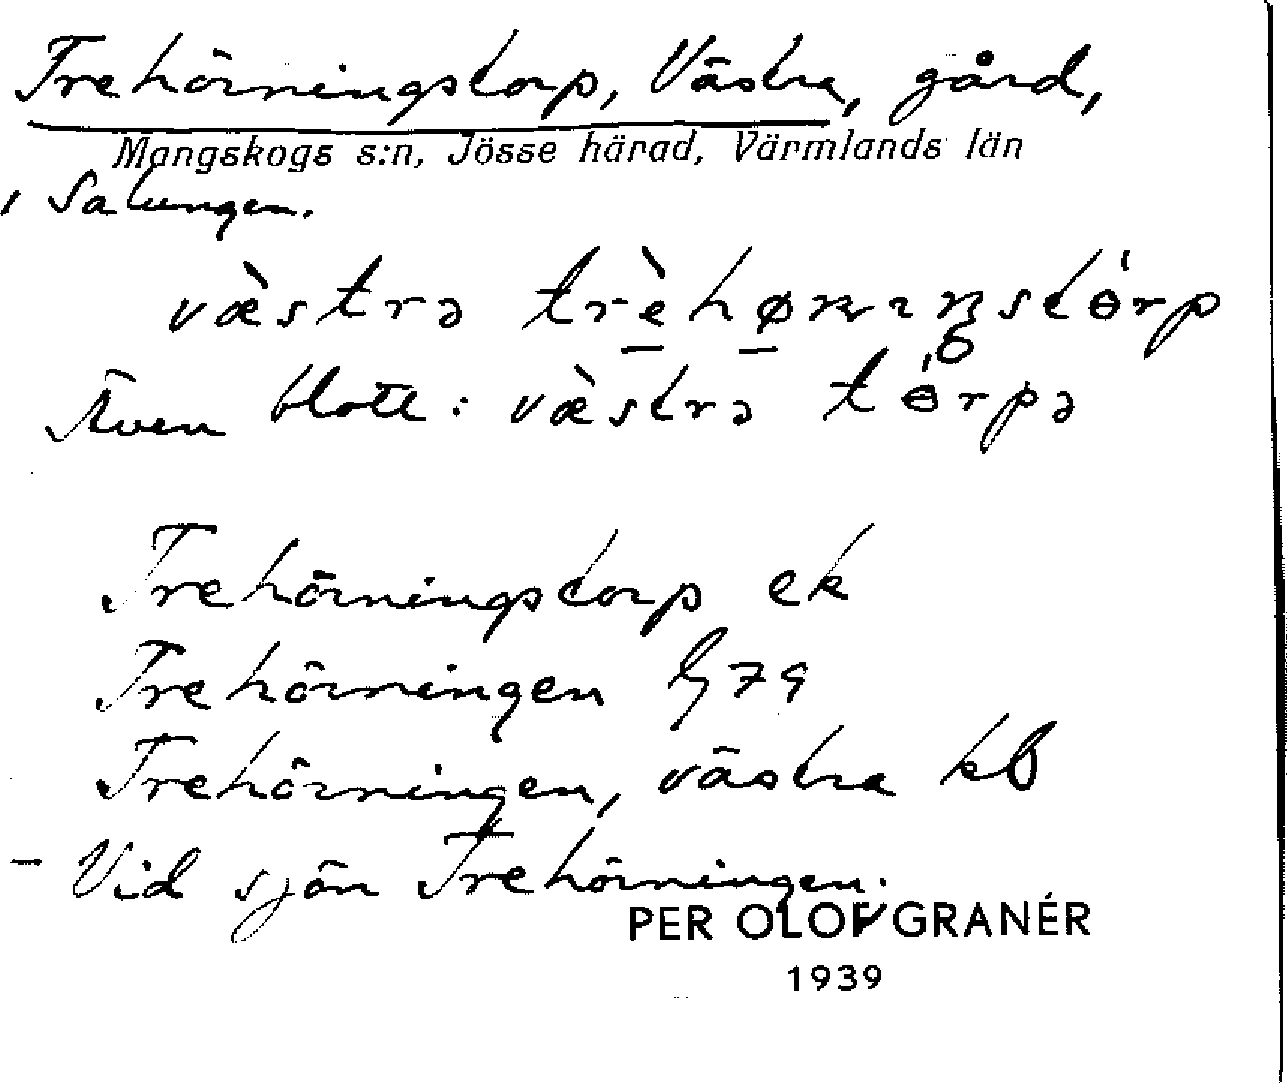 Trehörningstorp, Västra, gård,
Mangskogs s:n, Jösse härad, Värmlands län
i Salungen.
væ̀strə trè̠hø̠ɳɪŋstɵ́rp
Även blott: væ̀strə tɵ́rpə
Trehörningstorp ek
Trehörningen G 79
Trehörningen, västra kb
– Vid sjön Trehörningen.
PER OLOF GRANÉR
1939